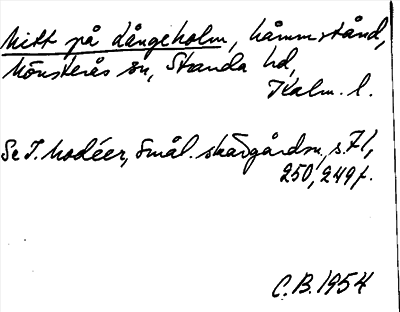 Mitt på Långeholm, Håmmstånd,
Mönsterås sn, Stranda hd,
Kalm. l.
Se I. Modéer, Smål. skärgårdsn, s. 71,
250, 249f.
C.B. 1954